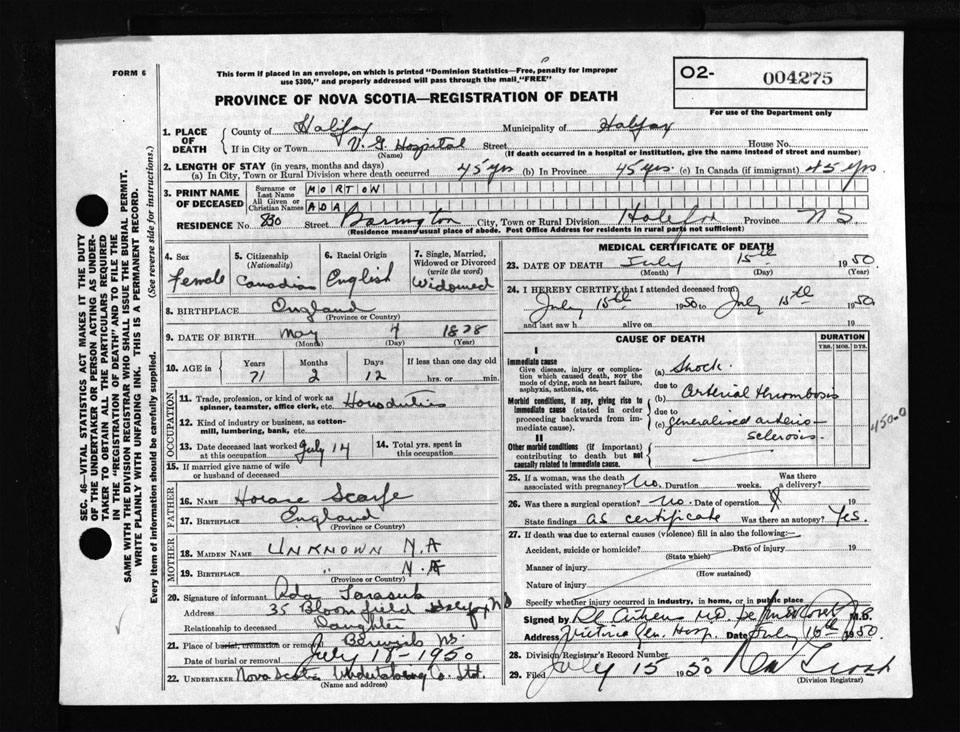 FORM 6
This form if placed in an envelope, on which is printed "Dominion Statistics—Free, penalty for improper
use $300," and properly addressed will pass through the mail, "FREE"
O2- 004275
For use of the Department only
PROVINCE OF NOVA SCOTIA—REGISTRATION OF DEATH
1. PLACE OF DEATH
County of Halifax Municipality of Halifax
If in City or Town V. G. Hospital Street House No.
(Name) (If death occurred in a hospital or institution, give the name instead of street and number)
2. LENGTH OF STAY (in years, months and days)
(a) In City, Town or Rural Division where death occurred 45 yrs (b) In Province 45 yrs. (c) In Canada (if immigrant) 45 yrs
3. PRINT NAME OF DECEASED
Surname or Last Name MORTON
All Given or Christian Names ADA
RESIDENCE No. 830 Street Barrington City, Town or Rural Division Halifax Province N S.
(Residence means usual place of abode. Post Office Address for residents in rural parts not sufficient)
4. Sex Female
5. Citizenship (Nationality) Canadian
6. Racial Origin English
7. Single, Married, Widowed or Divorced (write the word) Widowed
8. BIRTHPLACE England
(Province or Country)
9. DATE OF BIRTH May 4 1878
(Month) (Day) (Year)
10. AGE in Years 71 Months 2 Days 12 If less than one day old hrs. or min.
OCCUPATION
11. Trade, profession, or kind of work as spinner, teamster, office clerk, etc.
12. Kind of industry or business, as cotton-mill, lumbering, bank, etc.
13. Date deceased last worked at this occupation July 14
14. Total yrs. spent in this occupation
15. If married give name of wife or husband of deceased
FATHER
16. NAME Horace Scarfe
17. BIRTHPLACE England
(Province or Country)
MOTHER
18. MAIDEN NAME UNKNOWN N.A
19. BIRTHPLACE " N.A
(Province or Country)
20. Signature of informant Ada
Address 35 Bloomfield Halifax NS
Relationship to deceased Daughter
21. Place of burial, cremation or removal Berwick NS.
Date of burial or removal July 18 - 1950
22. UNDERTAKER Nova Scotia Undertaking Co. Ltd.
(Name and address)
MEDICAL CERTIFICATE OF DEATH
23. DATE OF DEATH July 15th 1950
(Month) (Day) (Year)
24. I HEREBY CERTIFY that I attended deceased from
July 15th 1950 to July 15th 1950.
and last saw h alive on 19
CAUSE OF DEATH
DURATION
YRS. MOS. DYS.
I
Immediate cause
Give disease, injury or complication which caused death, not the mode of dying, such as heart failure, asphyxia, asthenia, etc.
(a) Shock.
due to
Morbid conditions, if any, giving rise to immediate cause (stated in order proceeding backwards from immediate cause).
(b) Arterial thrombosis
due to
(c) generalised arterio-
sclerosis.
450-0
II
Other morbid conditions (if important) contributing to death but not causally related to immediate cause.
25. If a woman, was the death associated with pregnancy? No. Duration weeks. Was there a delivery?
26. Was there a surgical operation? No. Date of operation 19
State findings as certificate Was there an autopsy? Yes.
27. If death was due to external causes (violence) fill in also the following:—
Accident, suicide or homicide? Date of injury 19
(State which)
Manner of injury
(How sustained)
Nature of injury
Specify whether injury occurred in industry, in home, or in public place
Signed by M.D.
Address Victoria Gen. Hosp. Date July 16th 1950.
28. Division Registrar's Record Number
29. Filed July 15 1950
(Division Registrar)
SEC. 46—VITAL STATISTICS ACT MAKES IT THE DUTY
OF THE UNDERTAKER OR PERSON ACTING AS UNDER-
TAKER TO OBTAIN ALL THE PARTICULARS REQUIRED
IN THE "REGISTRATION OF DEATH" AND TO FILE THE
SAME WITH THE DIVISION REGISTRAR WHO SHALL ISSUE THE BURIAL PERMIT.
WRITE PLAINLY WITH UNFADING INK. THIS IS A PERMANENT RECORD.
Every item of information should be carefully supplied. (See reverse side for instructions.)